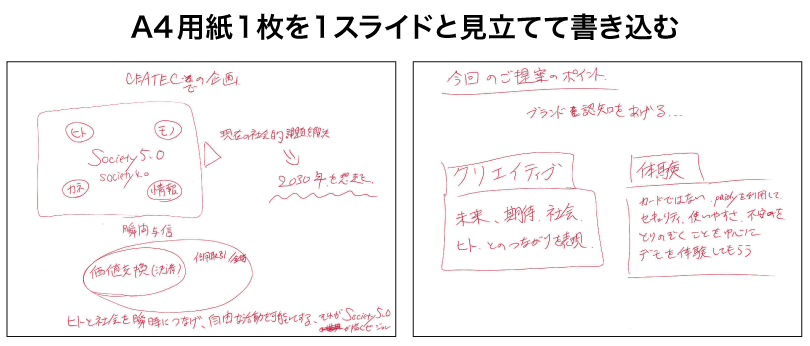 A4用紙1枚を1スライドと見立てて書き込む
CEATECの企画
ヒト
モノ
Society5.0
カネ
情報
現在の社会的課題を解決
2030年を想定
瞬間与信
価値交換(決済)
信用取引/金融
ヒトと社会を瞬時につなげ、自由な活動を可能にする、それがSociety5.0
今回のご提案のポイント
ブランド認知をあげる...
クリエイティブ
未来、期待、社会
ヒト、とのつながりを表現
体験
カードではない、paidyを利用して
セキュリティ、使いやすさ、不安を
とりのぞくことを中心に
デモを体験してもらう